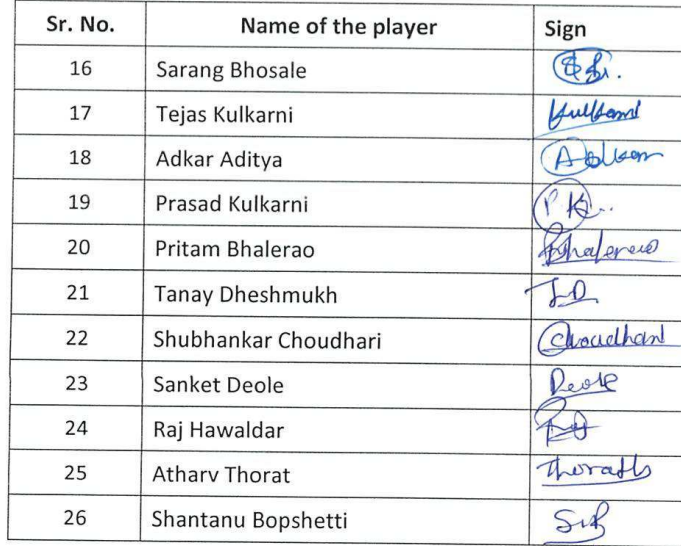 Sr. No. Name of the player Sign
16 Sarang Bhosale
17 Tejas Kulkarni Kulkarni
18 Adkar Aditya Adkar
19 Prasad Kulkarni PK..
20 Pritam Bhalerao Bhalerao
21 Tanay Dheshmukh T.D
22 Shubhankar Choudhari Choudhari
23 Sanket Deole Deole
24 Raj Hawaldar
25 Atharv Thorat
26 Shantanu Bopshetti